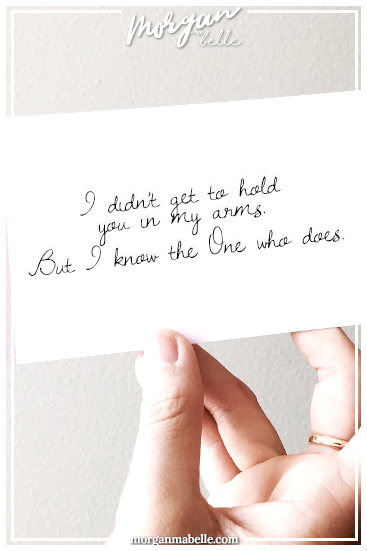 Morgan
mabelle
I didn't get to hold
you in my arms.
But I know the One who does.
morganmabelle.com